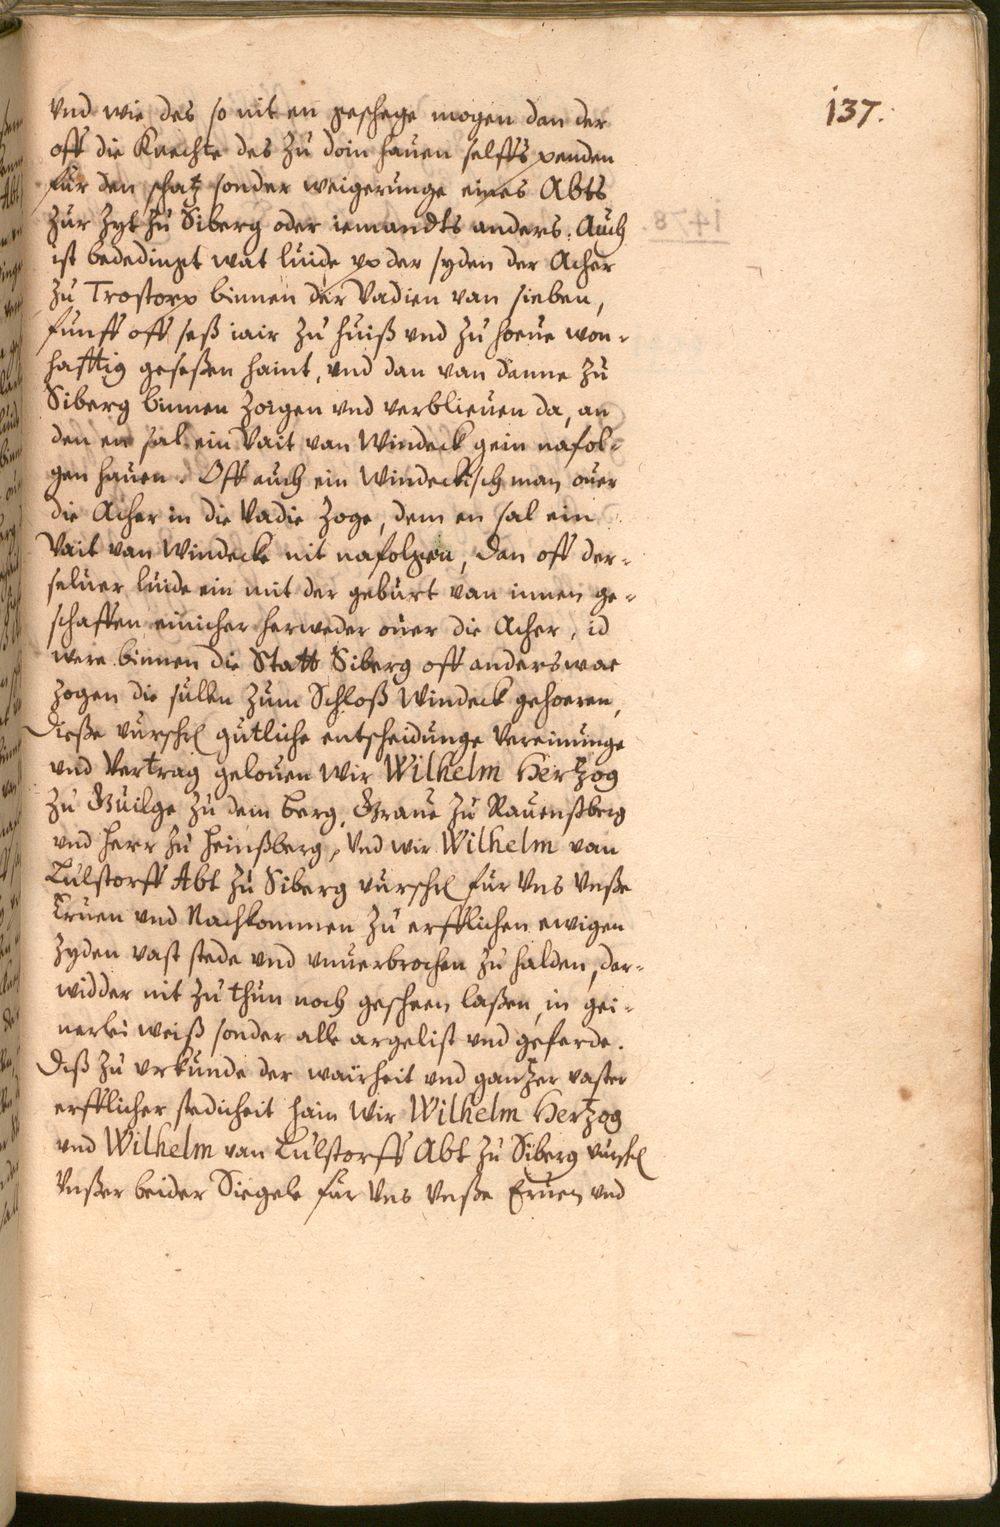 137.
vnd wie des so nit en geschege mogen dan der
off die Knechte des zu doin hauen selffs penden
fur den schatz sonder weigerunge eines Abts
zur Zyt zu Siberg oder iemandts anders. Auch
ist bededingt wat luide vp der syden der Acher
zu Trostorp binnen der Vadien van sieben,
funff off seß iair zu huiß vnd zu houe won-
hafftig geseßen haint, vnd dan van danne zu
Siberg binnen zoigen vnd verblieuen da, an
den en sal ein Vait van Windeck gein nafol-
gen hauen. Off auch ein Windeckisch man ouer
die Acher in die Vadie zoge, dem en sal ein
Vait van Windeck nit nafolgen, dan off der-
seluer luide ein mit der geburt van innen ge-
schaffen einicher herweder ouer die Acher, id
were binnen die Statt Siberg off anderswae
zogen die sullen zum Schloß Windeck gehoeren,
Dieße vurschr gutliche entscheidunge Vereinunge
vnd Vertrag gelouen Wir Wilhelm Hertzog
zu Guilge zu dem Berg, Graue zu Rauenßberg
vnd Herr zu Heinßberg, Vnd wir Wilhelm van
Lulstorff Abt zu Siberg vurschr fur Vns Vnße
Eruen vnd Nachkommen zu erfflichen ewigen
Zyden vast stede vnd vnuerbrochen zu halden, dar-
widder nit zu thun noch gescheen laßen, in gei-
nerlei weiß sonder alle argelist vnd geferde.
Diß zu vrkunde der wairheit vnd gantzer vaster
erfflicher stedicheit hain Wir Wilhelm Hertzog
vnd Wilhelm van Lulstorff Abt zu Siberg vurschr
Vnßer beider Siegele fur Vns Vnße Eruen vnd